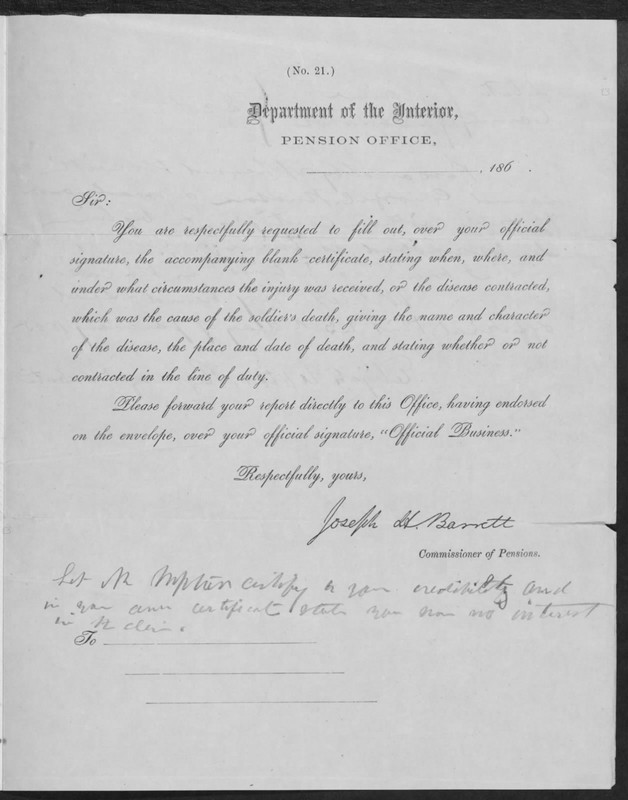 (No. 21.)
Department of the Interior,
PENSION OFFICE,
, 186 .
Sir:
You are respectfully requested to fill out, over your official
signature, the accompanying blank certificate, stating when, where, and
under what circumstances the injury was received, or the disease contracted,
which was the cause of the soldier's death, giving the name and character
of the disease, the place and date of death, and stating whether or not
contracted in the line of duty.
Please forward your report directly to this Office, having endorsed
on the envelope, over your official signature, "Official Business."
Respectfully, yours,
Joseph H. Barrett
Commissioner of Pensions.
Let certify your credibility and
in your certificate state you no interest
in claim.
To